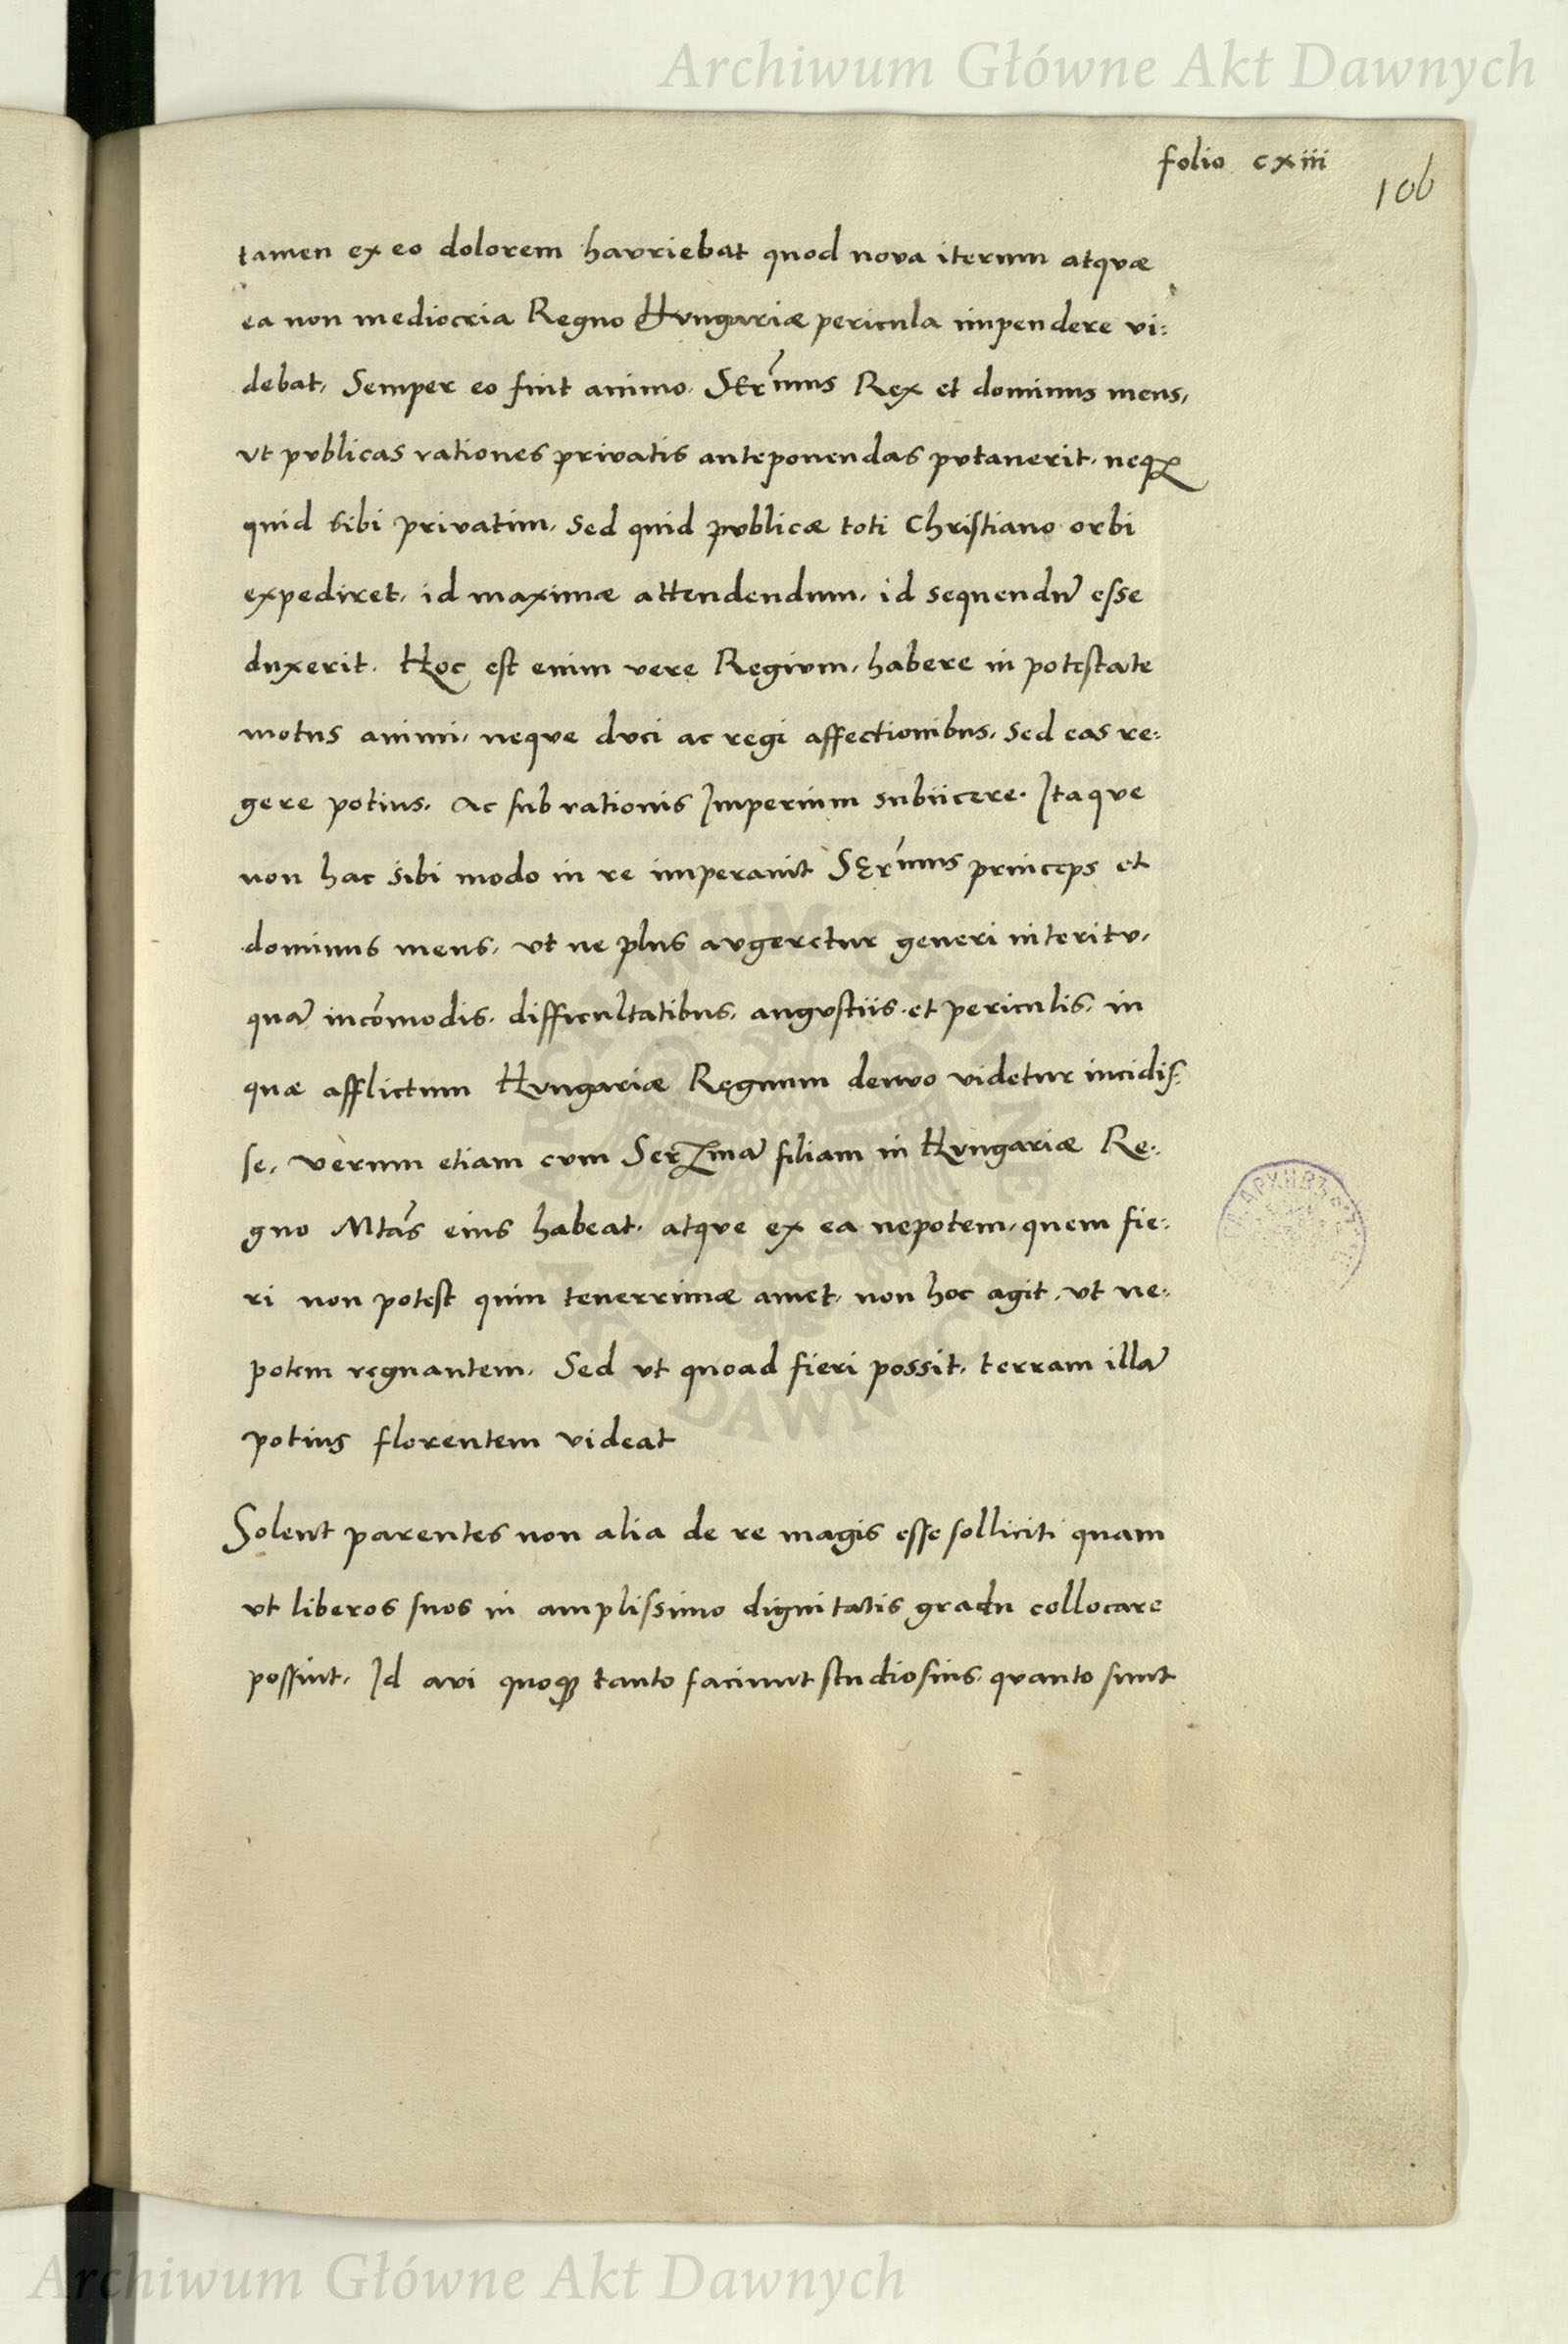 Archiwum Główne Akt Dawnych
folio cxiii
106
tamen ex eo dolorem havriebat quod nova iterum atqvæ
ea non mediocria Regno Hvngariæ pericula impendere vi:
debat, Semper eo fuit animo, SErm̃us Rex et dominus meus,
vt pvblicas rationes privatis anteponendas pvtauerit, neqȝ
quid sibi privatim, sed quid pvblicæ toti Christiano orbi
expediret, id maximæ attendendum, id sequendũ esse
duxerit. Hoc est enim vere Regivm, habere in potestate
motus animi, neqve dvci ac regi affectionibus, sed eas re:
gere potius, ac sub rationis Imperium subiicere. Itaqve
non hac sibi modo in re imperauit SErm̃us princeps et
dominus meus, vt ne plus avgeretur generi interitv,
quã incõmodis, difficultatibus, angvstiis et periculis, in
quæ afflictum Hvngariæ Regnum denvo videtur incidis:
se, verum etiam cvm Serm̃ã filiam in Hvngariæ Re:
gno Mtãs eius habeat, atqve ex ea nepotem, quem fie:
ri non potest quin tenerrimæ amet, non hoc agit, vt ne:
potem regnantem, Sed vt quoad fieri possit, terram illã
potius florentem videat
Solent parentes non alia de re magis esse solliciti quam
vt liberos suos in amplissimo dignitatis gradu collocare
possint, Id avi quoqȝ tanto faciunt studiosius, qvanto sunt
ARCHIWUM GŁÓWNE
AKT DAWNYCH
Archiwum Główne Akt Dawnych